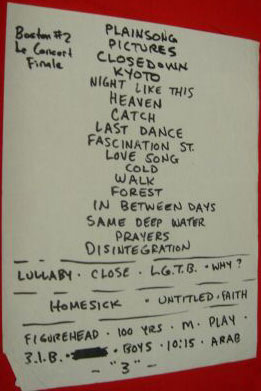 Boston #2
Le Concert
Finale
PLAINSONG
PICTURES
CLOSEDOWN
KYOTO
NIGHT LIKE THIS
HEAVEN
CATCH
LAST DANCE
FASCINATION ST.
LOVE SONG
COLD
WALK
FOREST
IN BETWEEN DAYS
SAME DEEP WATER
PRAYERS
DISINTEGRATION
LULLABY · CLOSE · L.G.T.B. · WHY?
HOMESICK · UNTITLED · FAITH
FIGUREHEAD · 100 YRS · M · PLAY ·
3.I.B. · · BOYS · 10:15 · ARAB
- "3" -